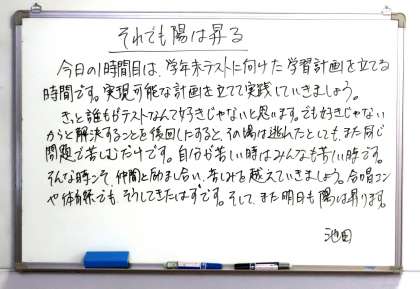 それでも陽は昇る
今日の1時間目は、学年末テストに向けた学習計画を立てる
時間です。実現可能な計画を立てて実践していきましょう。
きっと誰もがテストなんて好きじゃないと思います。でも好きじゃない
からと解決することを後回しにすると、その場は逃れたとしても、また同じ
問題で苦しむだけです。自分が苦しい時はみんなも苦しい時です。
そんな時こそ、仲間と励まし合い、苦しみを越えていきましょう。合唱コン
や体育祭でも、そうしてきたはずです。そして、また明日も陽は昇ります。
池田